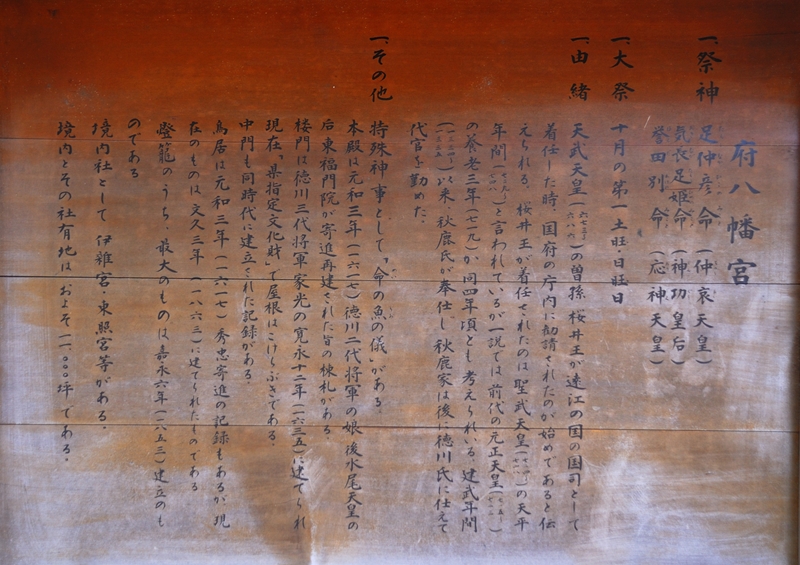 府八幡宮
一、祭神 足仲彦命(仲哀天皇)
気長足姫命(神功皇后)
誉田別命(応神天皇)
一、大祭 十月の第一土旺・日旺日
一、由緒 天武天皇の曽孫桜井王が遠江の国の国司として
着任した時、国府の庁内に勧請されたのが始めであると伝
えられる。桜井王が着任されたのは聖武天皇の天平
年間と言われているが一説では前代の元正天皇
の養老三年(七一九)か同四年頃とも考えられいる。建武年間
以来、秋鹿氏が奉仕し秋鹿家は後に徳川氏に仕えて
代官を勤めた。
一、その他 特殊神事として、「命の魚の儀」がある。
本殿は元和三年(一六一七)徳川二代将軍の娘後水尾天皇の
后東福門院が寄進再建された旨の棟札がある
楼門は徳川三代将軍家光の寛永十二年(一六三五)に建てられ
現在「県指定文化財」で屋根はこけらぶきである。
中門も同時代に建立された記録がある。
鳥居は元和三年(一六一七)秀忠寄進の記録もあるが現
在のものは文久三年(一八六三)に建てられたものである
燈籠のうち、最大のものは嘉永六年(一八五三)建立のも
のである
境内社として伊雑宮・東照宮等がある。
境内とその社有地はおよそ一一、〇〇〇坪である。